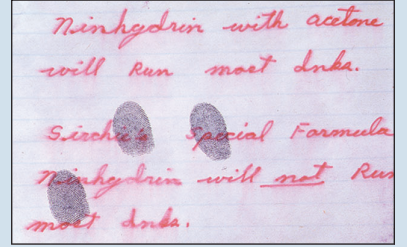 Ninhydrin with acetone
will Run most Inks.
Sirchie's Special Formula
Ninhydrin will not Run
most Inks.